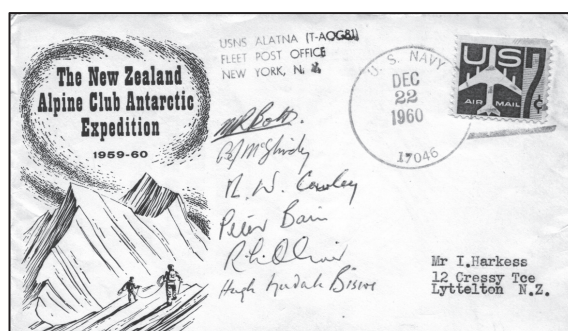 The New Zealand
Alpine Club Antarctic
Expedition
1959-60
USNS ALATNA (T-AOG81)
FLEET POST OFFICE
NEW YORK, N.
U. S. NAVY
DEC
22
1960
17046
US
7¢
AIR MAIL
R. W. Cowley
Peter Bain
Hugh Bisiou
Mr I.Harkess
12 Cressy Tce
Lyttelton N.Z.